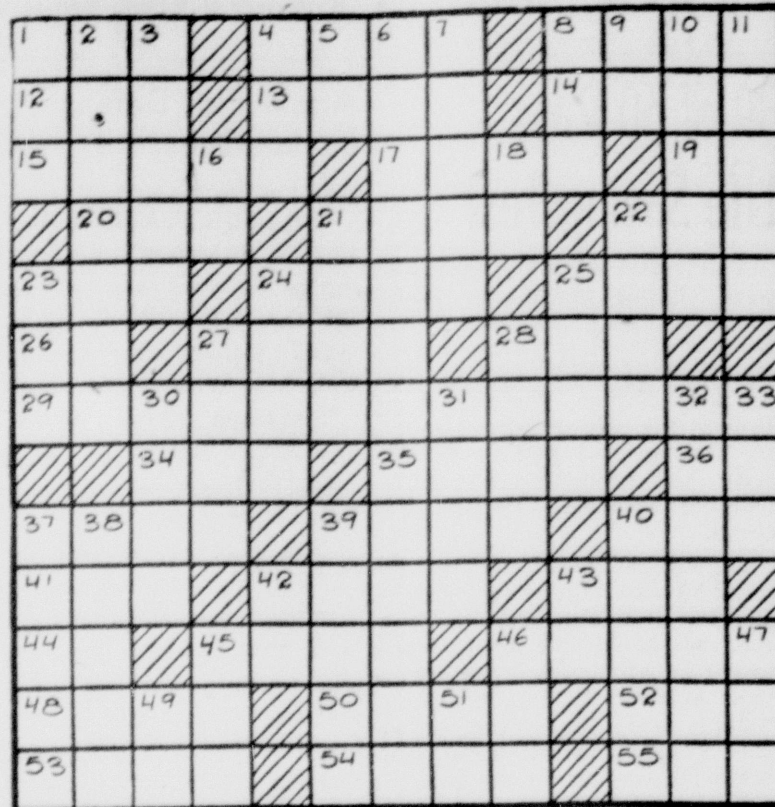 1 2 3 4 5 6 7 8 9 10 11
12 13 14
15 16 17 18 19
20 21 22
23 24 25
26 27 28
29 30 31 32 33
34 35 36
37 38 39 40
41 42 43
44 45 46 47
48 49 50 51 52
53 54 55